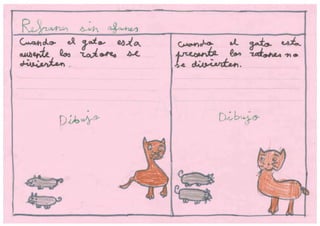 Refranes sin afanes
Cuando el gato esta
ausente los ratones se
divierten.
Dibujo
Cuando el gato esta
precente los ratones no
se divierten.
Dibujo